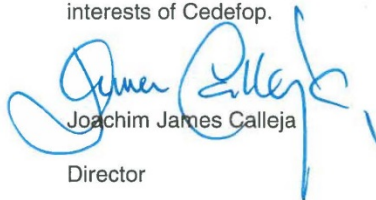 interests of Cedefop.
James Calleja
Joachim James Calleja
Director